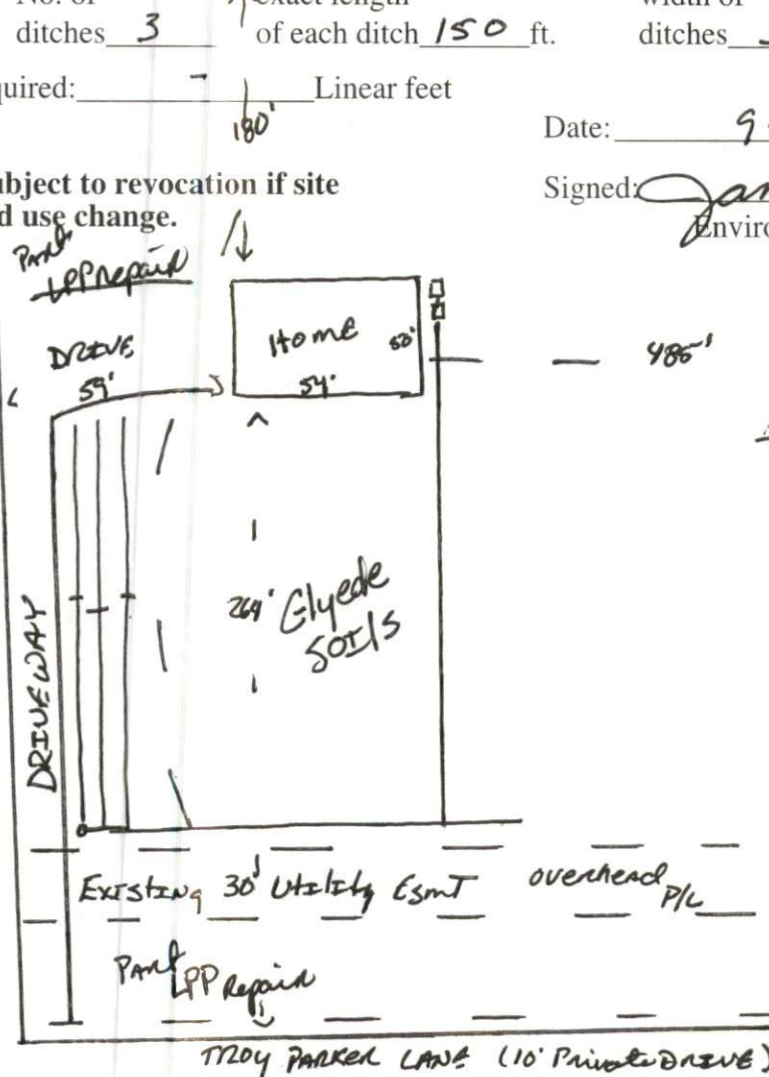 No. of exact length width of
ditches 3 of each ditch 150 ft. ditches
quired: - Linear feet
180'
Date: 9
ubject to revocation if site
d use change.
Signed: Jam
Enviro
Part
LPP Repair
DRIVE
59'
Home
50'
54'
485'
264'
Glyede
SOILS
DRIVEWAY
Existing 30' Utility Esmt overhead P/L
Part LPP Repair
TROY PARKER LANE (10' Private DRIVE)